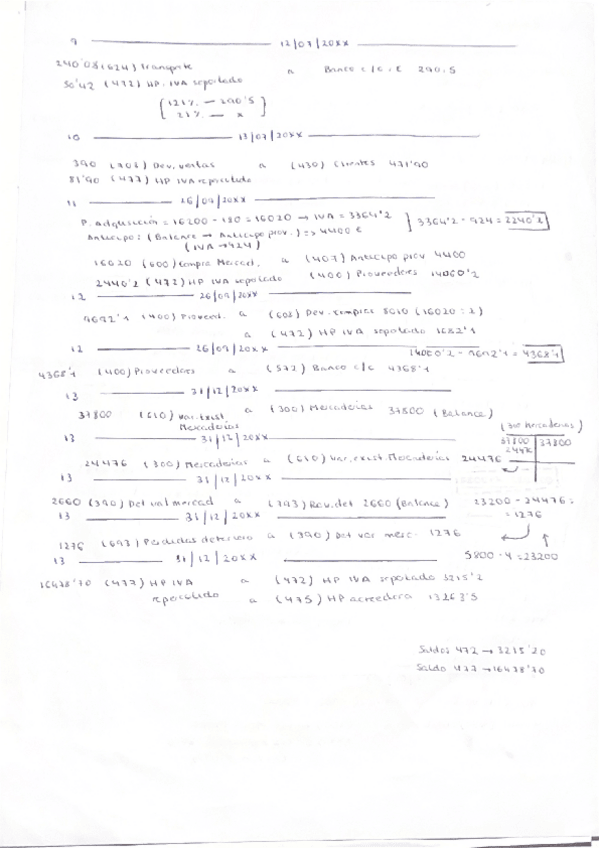 9 12/07/20xx
240'08 (624) Transporte a Banco c/c € 290.5
50'42 (472) HP. IVA soportado
[121% — 290'5
21% — x]
10 13/07/20xx
390 (708) Dev. ventas a (430) Clientes 471'90
81'90 (477) HP IVA repercutido
11 26/09/20xx
P. adquisición = 16200 - 180 = 16020 → IVA = 3364'2 ] 3364'2 - 924 = 2240'2
Anticipo: (Balance → Anticipo prov.) => 4400 €
(IVA → 924)
16020 (600) Compra Mercad. a (407) Anticipo prov 4400
2440'2 (472) HP IVA soportado (400) Proveedores 14060'2
12 26/09/20xx
9692'1 (400) Proveed. a (608) Dev. compras 8010 (16020:2)
a (472) HP IVA soportado 1682'1
12 26/09/20xx 14060'2 - 9692'1 = 4368'1
4368'1 (400) Proveedores a (572) Banco c/c 4368'1
13 31/12/20xx
37800 (610) Var. Exist. Mercaderías a (300) Mercaderías 37800 (Balance)
(300 Mercaderías)
13 31/12/20xx
37800 37800
24476
24476 (300) Mercaderías a (610) Var. exist. Mercaderías 24476
13 31/12/20xx
2660 (390) Det val mercad a (793) Rev. det 2660 (Balance) 23200 - 24476 =
= 1276
13 31/12/20xx
1276 (693) Perdidas deterioro a (390) Det var merc. 1276
13 31/12/20xx 5800 · 4 = 23200
16478'70 (477) HP IVA repercutido a (472) HP IVA soportado 3215'2
a (475) HP acreedora 13263'5
Saldos 472 → 3215'20
Saldo 477 → 16478'70